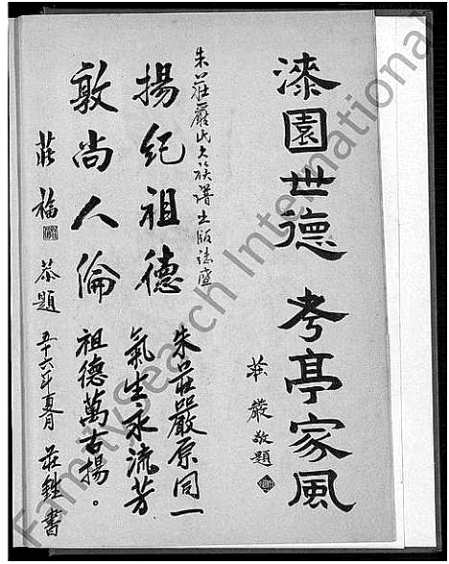 漆園世德 考亭家風
莊嚴敬題
朱莊嚴氏大族譜出版誌盛
揚紀祖德
敦尚人倫
莊福 恭題
朱莊嚴原同一
氣生永流芳
祖德萬古揚。
五十六年夏月 莊銓書
FamilySearch International